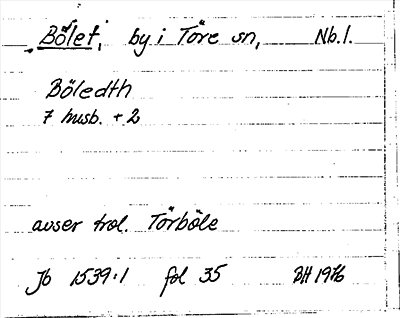 Bölet, by i Töre sn, Nb.l.
Böledth
7 husb. + 2
avser trol. Törböle
Jb 1539:1 fol 35 BH 1976